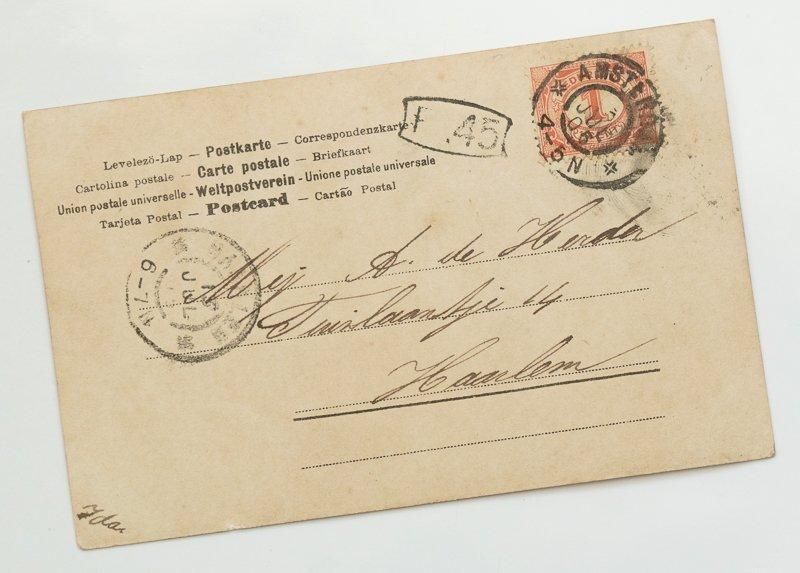 Levelező-Lap — Postkarte — Correspondenzkarte
Cartolina postale — Carte postale — Briefkaart
Union postale universelle - Weltpostverein - Unione postale universale
Tarjeta Postal — Postcard — Cartão Postal
F .45
1
AMSTERDAM
4-5N
6-7N
JUL
Mej. A. de Herder
Tuinlaantje 14
Haarlem
Ida